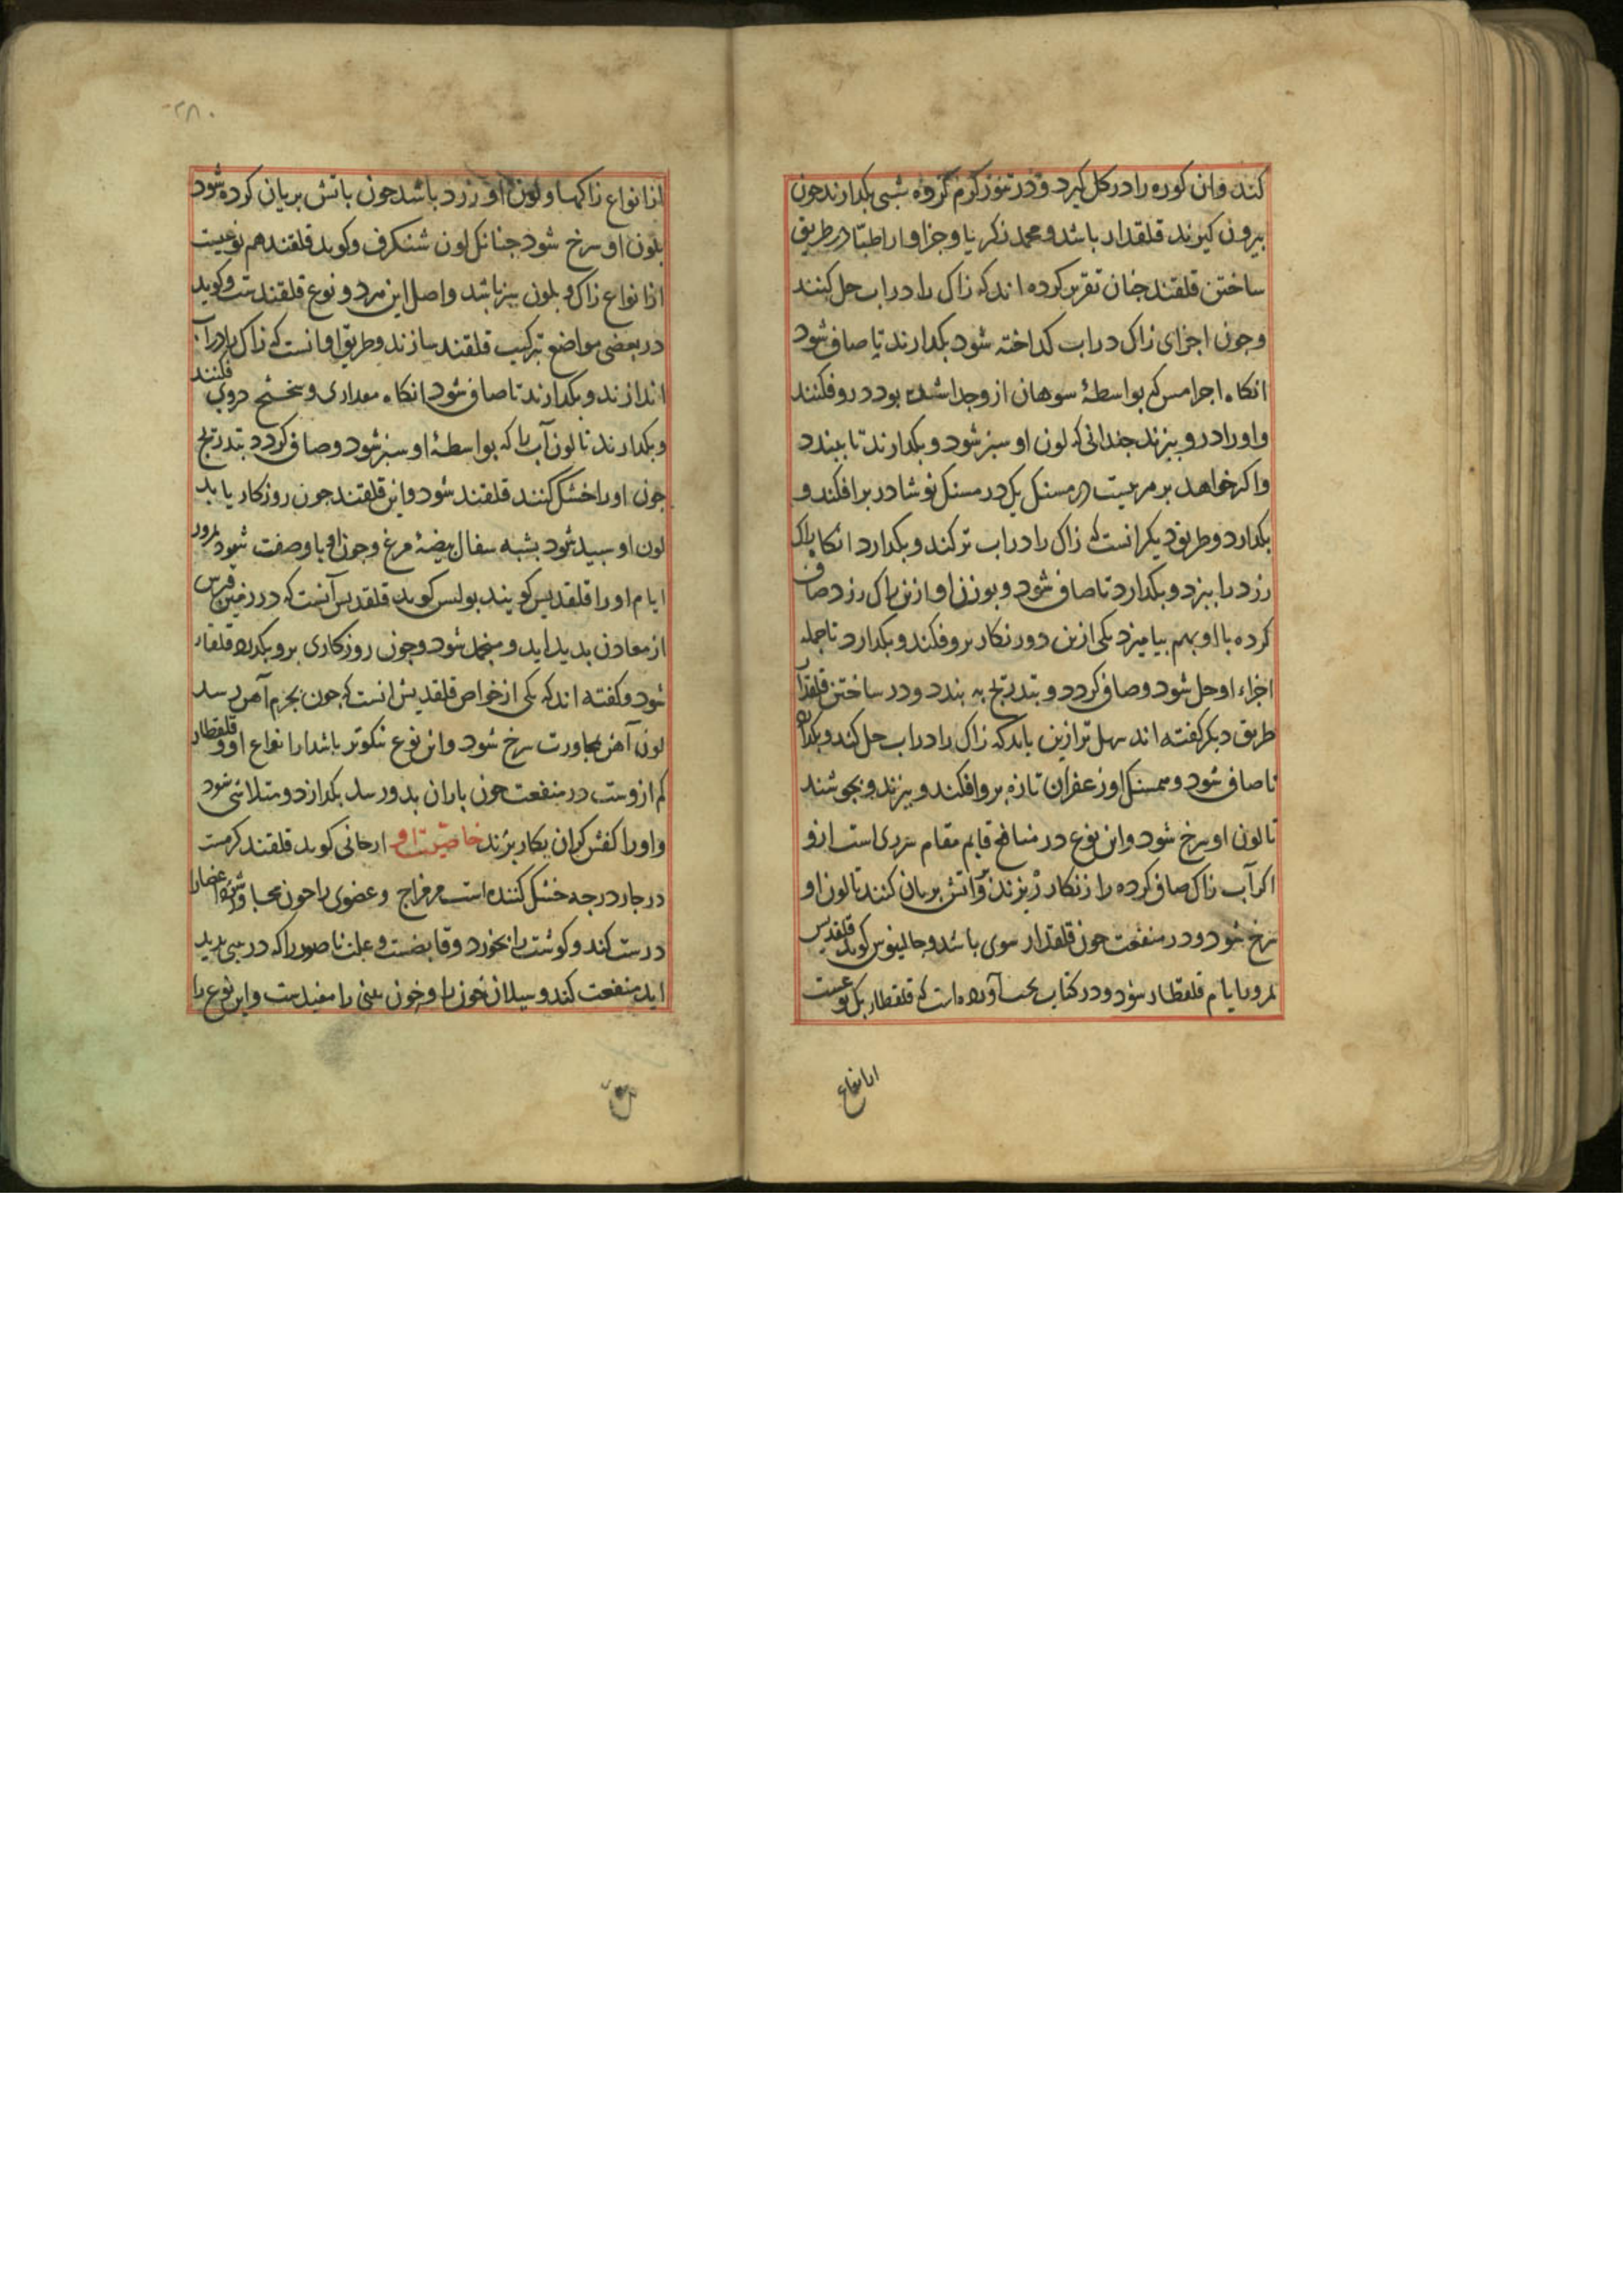 کند وان کوره را در کل کیرد و در تنور کرم کروه شبی بکدارند جون
بیرون کیرند قلقدار باشد و محمد زکریا و جزاو از اطبا در طریق
ساختن قلقند جنان تقریر کرده اند که زاک را در اب حل کنند
و جون اجزای زاک در اب کداخته شود بکدارند تا صاف شود
انکاه اجزا مس که بواسطۀ سوهان ازو جدا شده بود درو فکنند
و او را درو بپزند جندانی که لون او سبز شود و بکدارند تا ببندد
و اکر خواهد بر هر بیست درمسنک یک درمسنک نوشادر بر افکند و
بکدارد و طریق دیکر انست که زاک را در اب تر کند و بکدارد انکاه زاک
زرد را بپزد و بکدارد تا صاف شود و بوزن او ازین زاک زرد صاف
کرده با او بهم بیامیزد یکی ازین دو زنکار برو فکند و بکدارد تا جمله
اجزاء او حل شود و صاف کردد و بتدریج به بندد و در ساختن قلقدار
طریق دیکر کفته اند سهل تر ازین باید که زاک را در اب حل کند و بکدارد
تا صاف شود و همسنک او زعفران تازه برو افکند و بپزند و بجوشند
تا لون او سرخ شود و این نوع در منافع قایم مقام است ازو
اکر آب زاک صاف کرده را زنکار ریزند و آتش بریان کنند تا لون او
سرخ شود و در منفعت جون قلقدار سوی باشد و جالینوس کوید قلقدیس
بمرور ایام قلقطار شود و در کتاب آورده است که قلقطار یک نوعیست
از انواع
۲۸۰
از انواع زاکها و لون او زرد باشد جون باتش بریان کرده شود
بلون او سرخ شود جنانک لون شنکرف و کوید قلقند هم نوعیست
از انواع زاک و بلون سبز باشد و اصل این هر دو نوع قلقندست و کوید
در بعضی مواضع ترکیب قلقند سازند و طریق او انست که زاک را در آب
اندازند و بکدارند تا صاف شود انکاه مقداری دروی فکنند
و بکدارند تا لون آب را که بواسطۀ او سبز شود و صاف کردد بتدریج
جون او را خشک کنند قلقند شود و این قلقند جون روزکار یابد
لون او سبید شود بشبه سفال بیضۀ مرغ و جون او باوصفت شود بمرور
ایام او را قلقدیس کویند بولس کوید قلقدیس آنست که در زمین قبرس
از معادن بدید اید و منجمد شود و جون روزکاری برو بکدرد قلقطار
شود و کفته اند که یکی از خواص قلقدیس انست که جون بجرم آهن رسد
لون آهن بمجاورت سرخ شود و این نوع نیکوتر باشد از انواع او و قلقطار
کم ازوست در منفعت جون باران بدو رسد بکدازد و متلاشی شود
و او را کفش کران بکار برند خاصیت او ارجانی کوید قلقند کرمست
در جهار درجه خشک کننده است مر مزاج و عضوی را جون اعضا را
درست کند و کوشت را بخورد و قابضست و علت ناصور را که در بینی بدید
اید منفعت کند و سیلان خون را و خون بینی را مفیدست و این نوع را